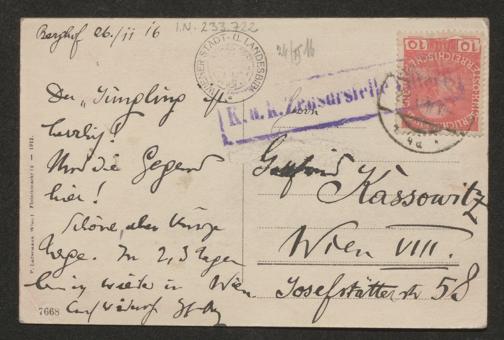 Berghof 26./11 16
I.N. 233.722
26/XI 16
WIENER STADT- U. LANDESBIBL.
K. u. k. Zensurstelle
10 10
Der „Jüngling" ist
herrlich!
Und die Gegend
hier!
Schöne, aber kurze
Tage. In 2, 3 Tagen
bin ich wieder in Wien
Herrn
Gottfried
Kassowitz
Wien VIII.
Josefstätterstr 58
P. Ledermann, Wien I. Fleischmarkt 12 — 1912.
7668